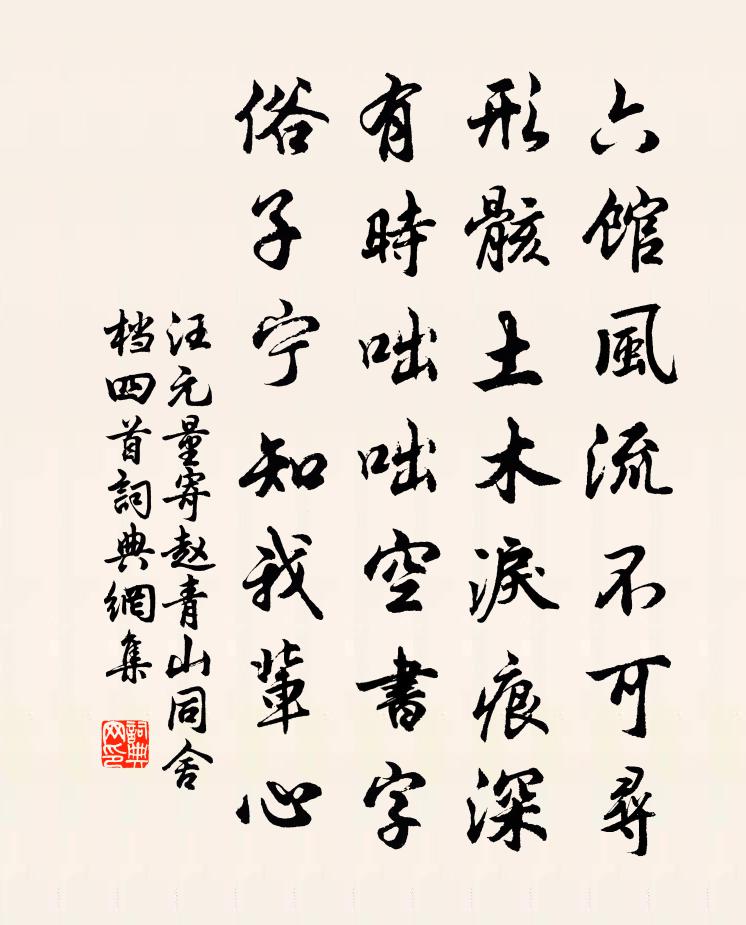 六館風流不可尋
形骸土木淚痕深
有時咄咄空書字
俗子宁知我輩心
汪元量寄赵青山同舍
档四首詞典網集
詞典
网印